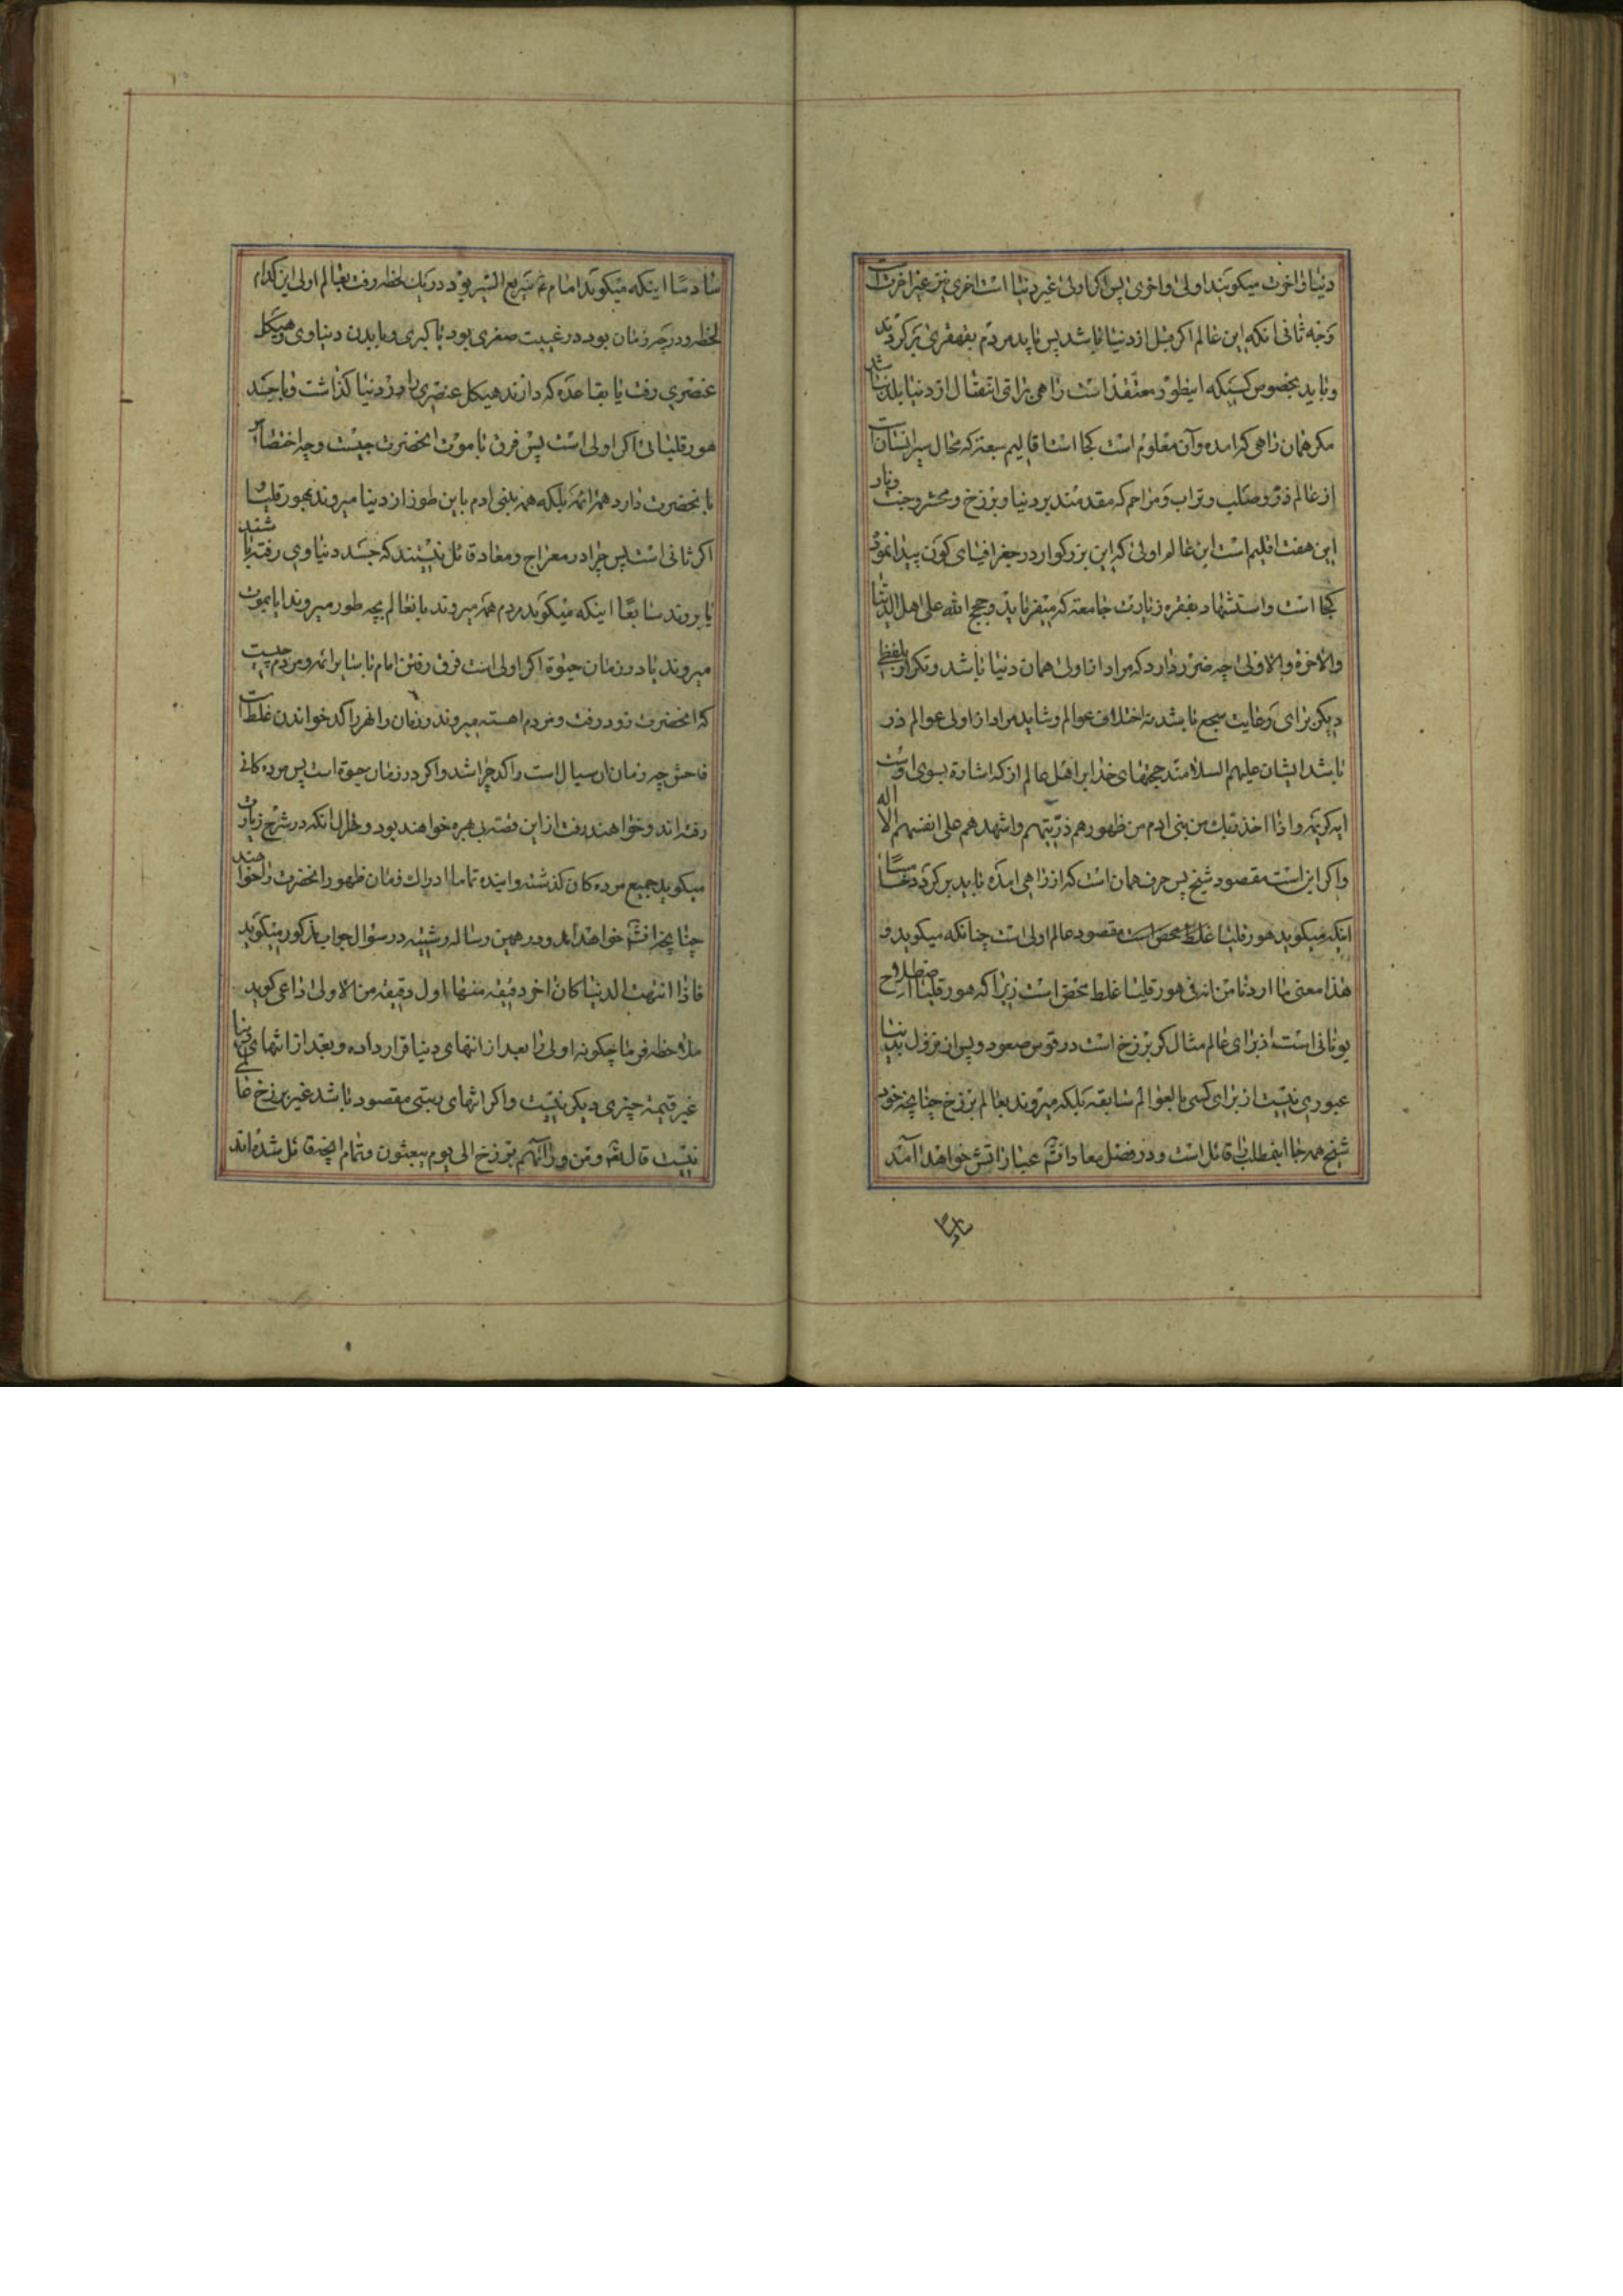 دنیا و اخرت میکویند اولی و اخری پس اکر اولی غیر دنیا است اخری نیز غیر اخرت است
وجه ثانی انکه این عالم اکر قبل از دنیا باشد پس باید مردم بقهقری بر کردند
و باید بخصوص کسیکه اینطور معتقد است راهی برای انتقال از دنیا بلد باشد
مکر همان راهی که امده و آن معلوم است کجا است اقالیم سبعه که محال سیر انسان است
از عالم ذر و صلب و تراب و مراحم که مقدمند بر دنیا و برزخ و محشر و جنت و نار
این هفت اقلیم است این عالم اولی که این بزرکوار در جغرافیای کون پیدا نمود
کجا است و استشهاد بفقره زیارت جامعه که میفرماید و حجج الله علی اهل الدنیا
والاخرة والاولی چه ضرر دارد که مراد از اولی همان دنیا باشد و تکرار بلفظ
دیکر برای رعایت سجع باشد نه اختلاف عوالم و شاید مراد از اولی عوالم ذر
باشد ایشان علیهم السلامند حجتهای خدا بر اهل عالم ذر که اشاره بسوی اوست
ایه کریمه و اذا اخذ ربك من بنی ادم من ظهورهم ذریتهم و اشهدهم علی انفسهم الایه
و اکر این است مقصود شیخ پس حرف همان است که از راهی امده باید بر کردد خامسا
اینکه میکوید هورقلیا غلط محض است مقصود عالم اولی است چنانکه میکوید و
هذا معنی ما اردنا من انه فی هورقلیا غلط محض است زیرا که هورقلیا اصطلاح
یونانی است از برای عالم مثال که برزخ است در قوس صعود و پس از نزول بدنیا
عبوری نیست از برای کسی بالعوالم سابقه بلکه میروند بعالم برزخ چنانچه خود
شیخ همه جا اینمطلب را قائل است و در فصل معاد انشأ عباراتش خواهد آمد
سادسا
سادسا اینکه میکوید امام ع سریع السیر بود در یك لحظه رفت بعالم اولی این کدام
لحظه و در چه زمان بود در غیبت صغری بود یا کبری و با بدن دنیاوی و هیکل
عنصری رفت یا بقاعده که دارند هیکل عنصری را در دنیا کذاشت و با جسد
هورقلیائی اکر اولی است پس فرق با موت انحضرت چیست و چه اختصاص
بانحضرت دارد همه ائمه بلکه همه بنی ادم باین طور از دنیا میروند بهورقلیا و
اکر ثانی است پس چرا در معراج و معاد قائل نیستند که جسد دنیاوی رفته باشند
یا بروند سابعا اینکه میکوید مردم همه میروند بانعالم بچه طور میروند ایا بموت
میروند یا در زمان حیوة اکر اولی است فرق رفتن امام با سایر ائمه و مردم چیست
که انحضرت زود رفت و مردم اهسته میروند و زمان را نهر راکد خواندن غلط است
فاحش چه زمان سیال است راکد چرا شد و اکر در زمان حیوة است پس مرده کانی
رفته اند و خواهند رفت از این قصه بی بهره خواهند بود و حال انکه در شرح زیارت
میکوید جمیع مرده کان کذشته و اینده تماما ادراك زمان ظهور انحضرت را خواهند
چنانچه انشأ خواهد امد و در همین رساله رشتیه در سؤال جواب مذکور میکوید
فاذا انتهت الدنیا کان اخر دقیقه منها اول دقیقه من الاولی داعی کوید
ملاحظه فرما چکونه اولی را بعد از انتهای دنیا قرار داده و بعد از انتهای دنیا
غیر قیمة چیزی دیکر نیست و اکر انتهای نسبی مقصود باشد غیر برزخ عالمی
نیست قال الله و من ورائهم برزخ الی یوم یبعثون و تمام انچه قائل شده اند